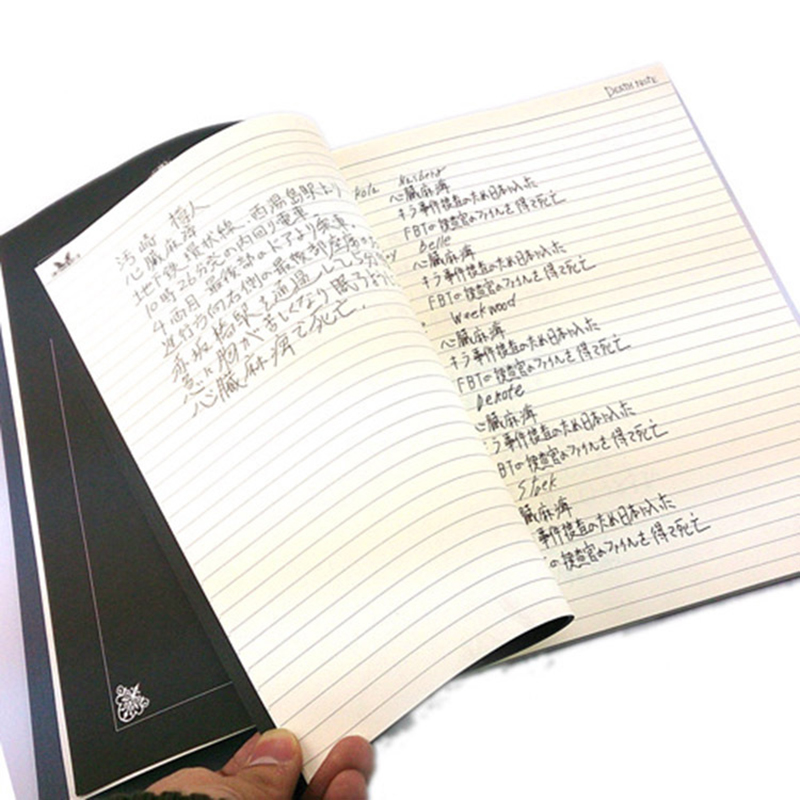 心臓麻痺
地下鉄環状線、西湯島駅より
10時26分発の内回り電車
4両目 最後部のドアより乗車。
進行方向右側の最後部座席
赤坂橋駅を通過して5分
急に胸が苦しくなり眠るよう
心臓麻痺で死亡.
DEATH NOTE
心臓麻痺
キラ事件捜査のため日本に入った
FBIの捜査官のファイルを得て死亡
Belle
心臓麻痺
キラ事件捜査のため日本に入った
FBIの捜査官のファイルを得て死亡
Weekwood
心臓麻痺
キラ事件捜査のため日本に入った
FBIの捜査官のファイルを得て死亡
Denote
心臓麻痺
ラ事件捜査のため日本に入った
BIの捜査官のファイルを得て死亡
Stack
臓麻痺
事件捜査のため日本に入った
の捜査官のファイルを得て死亡